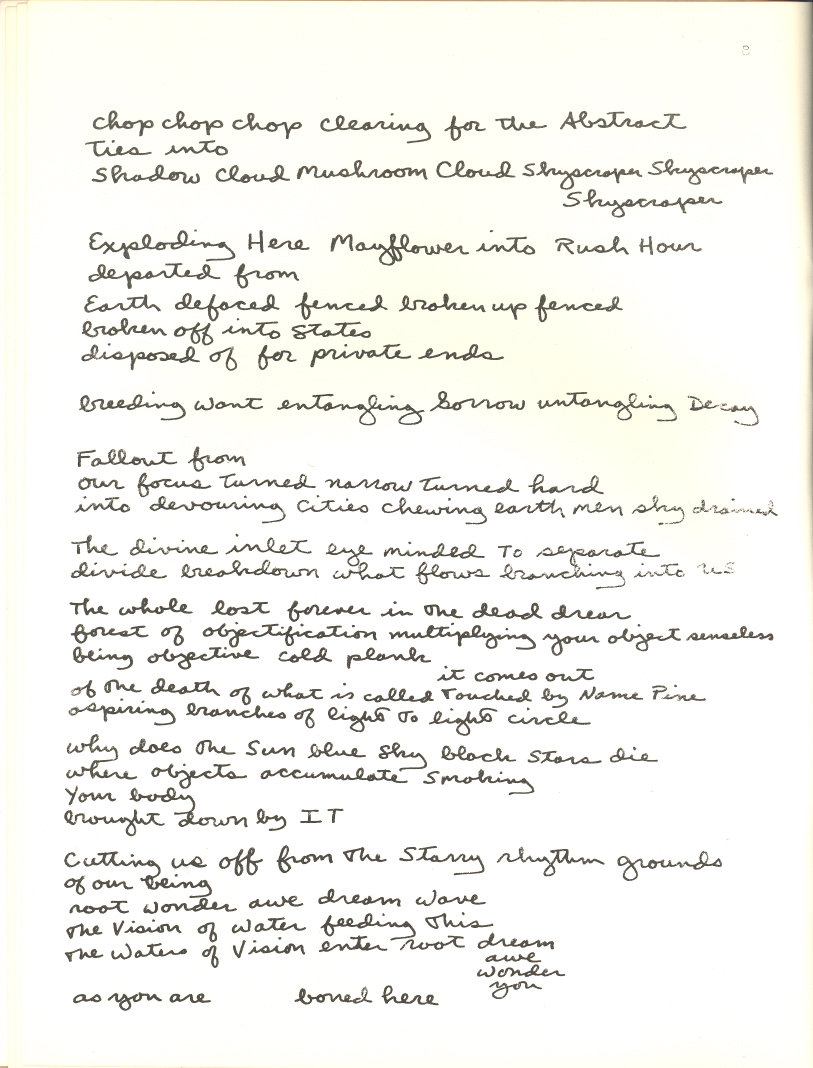 8
chop chop chop clearing for the Abstract
Ties into
Shadow Cloud Mushroom Cloud Skyscraper Skyscraper
Skyscraper
Exploding Here Mayflower into Rush Hour
departed from
Earth defaced fenced broken up fenced
broken off into States
disposed of for private ends
breeding want entangling Sorrow untangling Decay
Fallout from
our focus turned narrow turned hard
into devouring Cities chewing earth men sky drained
The divine inlet eye minded To separate
divide breakdown what flows branching into us
The whole lost forever in the dead drear
forest of objectification multiplying your object senseless
being objective cold plank
it comes out
of the death of what is called Touched by Name Pine
aspiring branches of light To light circle
why does the Sun blue Sky black Stars die
where objects accumulate Smoking
Your body
brought down by IT
Cutting us off from the Starry rhythm grounds
of our being
root wonder awe dream wave
the Vision of Water feeding This
the Waters of Vision enter root dream
awe
wonder
you
as you are boned here